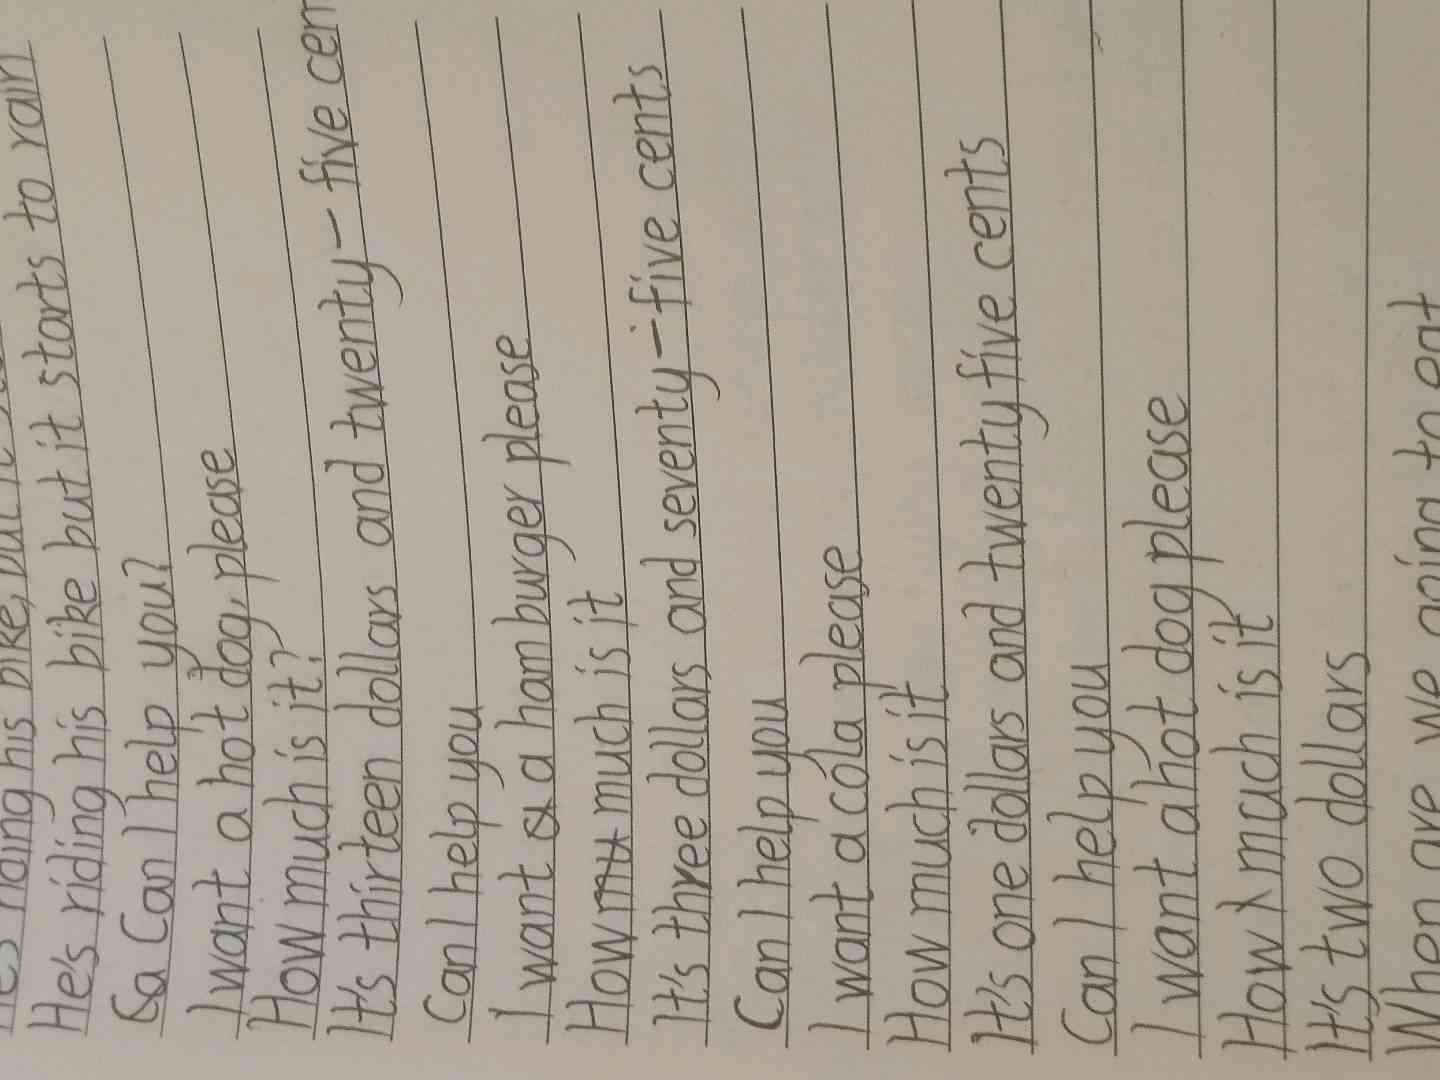 He's riding his bike, but it
He's riding his bike but it starts to rain
Can I help you?
I want a hot dog, please
How much is it?
It's thirteen dollars and twenty-five cen
Can I help you
I want a hamburger please
How much is it
It's three dollars and seventy-five cents
Can I help you
I want a cola please
How much is it
It's one dollars and twenty five cents
Can I help you
I want a hot dog please
How much is it
It's two dollars
When are we going to eat